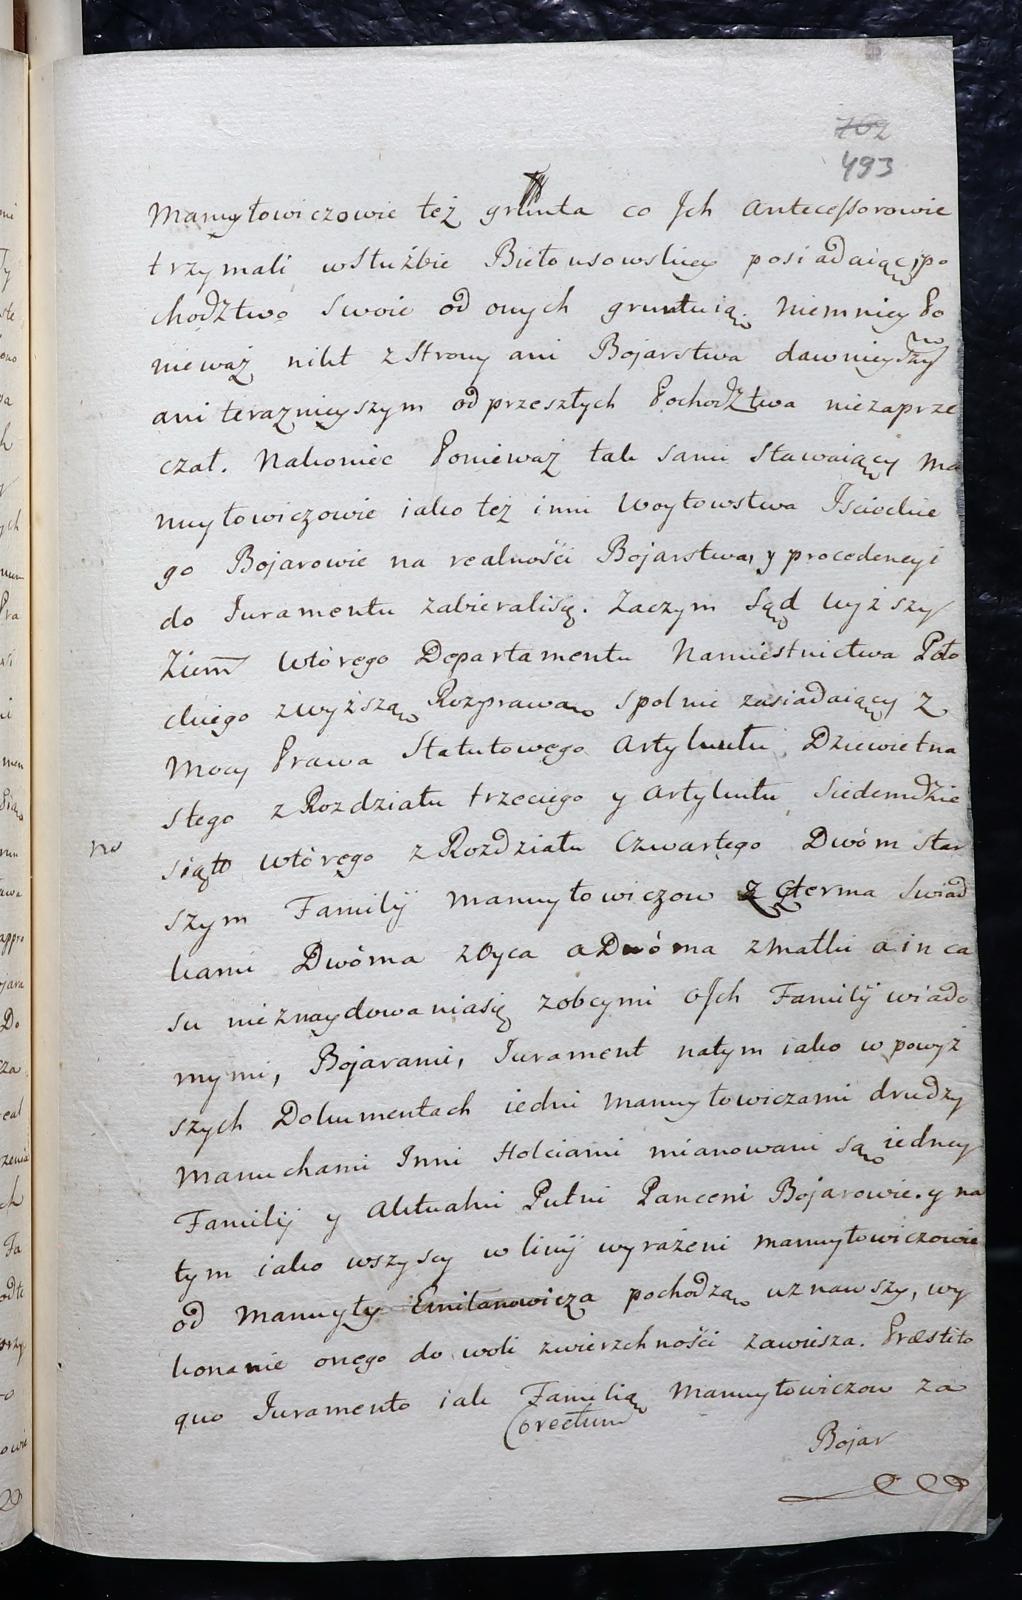 762
493
Manuyłowiczowie też grunta co Jch Antecessorowie
trzymali w Służbie Biełousowskiey posiadaiąc, po
chodztwo Swoie od onych gruntuią. Niemniey Po
nieważ nikt z Strony ani Bojarstwa dawnieyszy
no
ani teraznieyszym od przeszłych Pochodztwa niezaprze
czał. Nakoniec Ponieważ tak sami Stawaiący Ma
nuyłowiczowie iako też inni Woytowstwa
go Bojarowie na realności Bojarstwa, y procedencyi
do Juramentu zabieralisię. Zaczym Sąd wyższy
Ziem̃ wtórego Departamentu Namiestnictwa Poło
ckiego z wyższą Rozprawą spolnie zasiadaiący z
Mocy Prawa Statutowego Artykułu Dziewietna
stego z Rozdziału trzeciego y Artykułu Siedemdzie
no
siąt wtórego z Rozdziału Czwartego Dwóm star
szym Familij Manuyłowiczow z czterma Swiad
kami Dwóma z Oyca a Dwóma z Matki a in ca
su nieznaydowaniasię z obcymi o Jch Familij wiado
mymi, Bojarami, Jurament natym iako w powyż
szych Dokumentach iedni Manuyłowiczami drudzy
Manuchami Jnni Holciami mianowani są iedney
Familij y Aktualni Putni Panceni Bojarowie. y na
tym iako wszyscy w linij wyrażeni Manuyłowiczowie
od Manuyły Emilanowicza pochodzą uznawszy, wy
konanie onego do woli zwierzchności zawiesza. Præstito
quo Juramento iak Familią Manuyłowiczow za
Corectum
Bojar